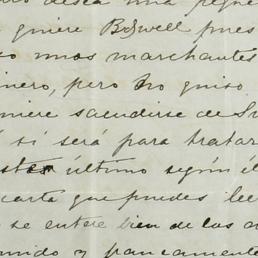 desea una peque
quiere Boswell pues
unos marchantes
inero, pero no quiso
uiere sacudirse de Su
si será para tratar
este último según él
carta que puedes lee
se entere bien de las a
y francamente